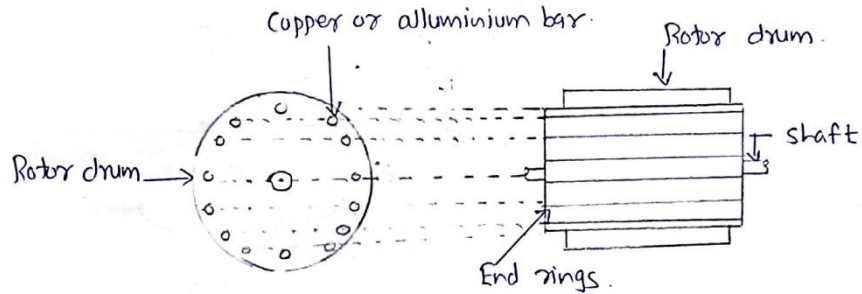 Copper or alluminium bar.
Rotor drum.
shaft
Rotor drum
End rings.